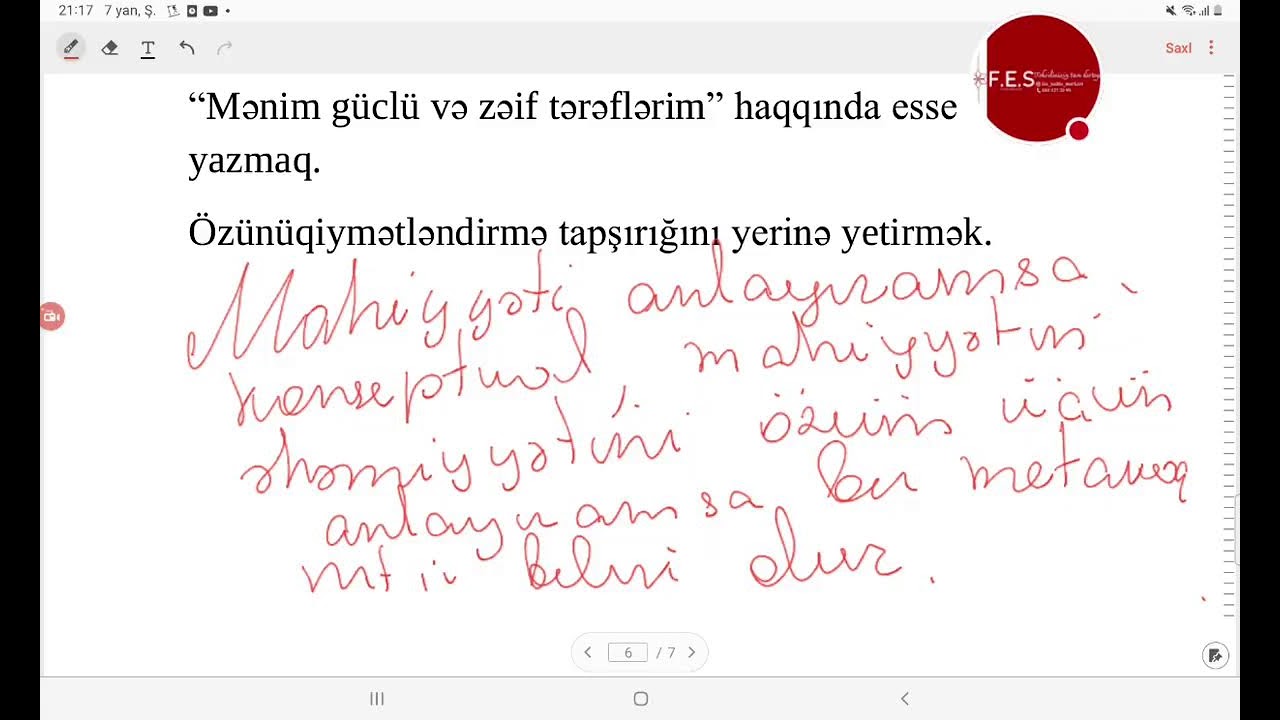 21:17 7 yan, Ş.
Saxl
F.E.S
“Mənim güclü və zəif tərəflərim” haqqında esse
yazmaq.
Özünüqiymətləndirmə tapşırığını yerinə yetirmək.
Mahiyyəti anlayıramsa
konseptual, mahiyyətin
əhəmiyyətini özüm üçün
anlayıramsa bu metakoq
nitiv bilik olur.
6 / 7